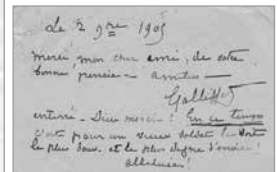 Le 2 9bre 1905
Merci mon cher ami, de votre
bonne pensée - amitiés -
Galliffet
enterré - Dieu merci ! En ce temps
c'est pour un vieux soldat la sort
le plus doux et le plus digne d'envie !
alleluia !